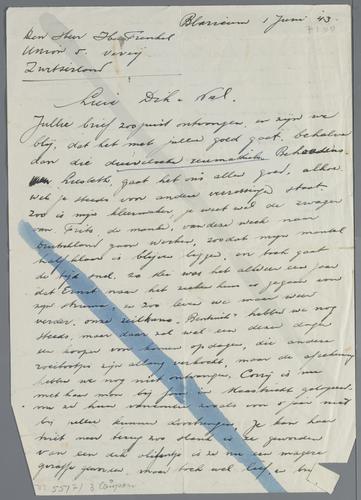 Blaricum 1 Juni '43.
Den Heer H. Frenkel
Union 5. Vevey
Zwitserland
Lieve Dik & Nel.
Jullie brief zoojuist ontvangen en zijn we
blij, dat het met jullie goed gaat, behalve
dan die rheumatiek. Behoudens
Liesbeth, gaat het ons allen goed, alhoe-
wel je steeds voor andere verrassingen staat
zoo is mijn kleermaker, je weet wel de zwager
van Frits, de manke, van deze week naar
Duitschland gaan werken, zoodat mijn mantel
half klaar is blijven liggen. en toch gaat
de tijd snel. Zoo was het alweer een jaar
dat Ernst naar het ziekenhuis is gegaan voor
zijn struma en zoo leven we maar weer
verder. onze zeilkano. hebben we nog
steeds, maar daar zal wel een dezer dagen
een kooper voor komen opdagen, die andere
zeilbootjes zijn allang verkocht, maar de afrekening
hebben we nog niet ontvangen. Corry is nu
met haar man bij Jou in Maastricht gelogeerd
nu ze hun vacantie zooals voor 5 jaar niet
bij jullie kunnen doorbrengen. Je kan haar
niet meer terug zoo slank is ze geworden
van een dik olifantje is ze nu een magere
giraffe geworden, maar toch wel lief en